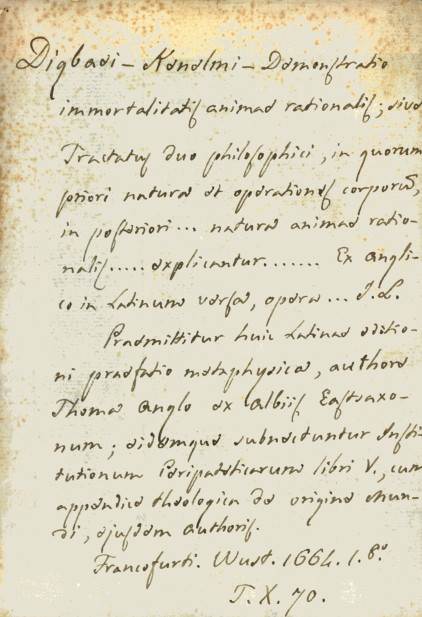 Digbaei – Kenelmi – Demonstratio
immortalitatis animae rationalis; sive
Tractatus duo philosophici, in quorum
priori natura et operationes corporū,
in posteriori ... natura animae ratio-
nalis ..... explicantur ....... Ex Angli-
co in Latinum versa, opera ... J. L.
Praemittitur huic Latinae editio-
ni praefatio metaphysica, authore
Thoma Anglo ex Albiis Eastsaxo-
num; eidemque subnectuntur Insti-
tutionum Peripateticarum libri V., cum
appendice theologica de origine Mun-
di, ejusdem Authoris.
Francofurti. Wust. 1664. 1. 8.º
T. X. 70.